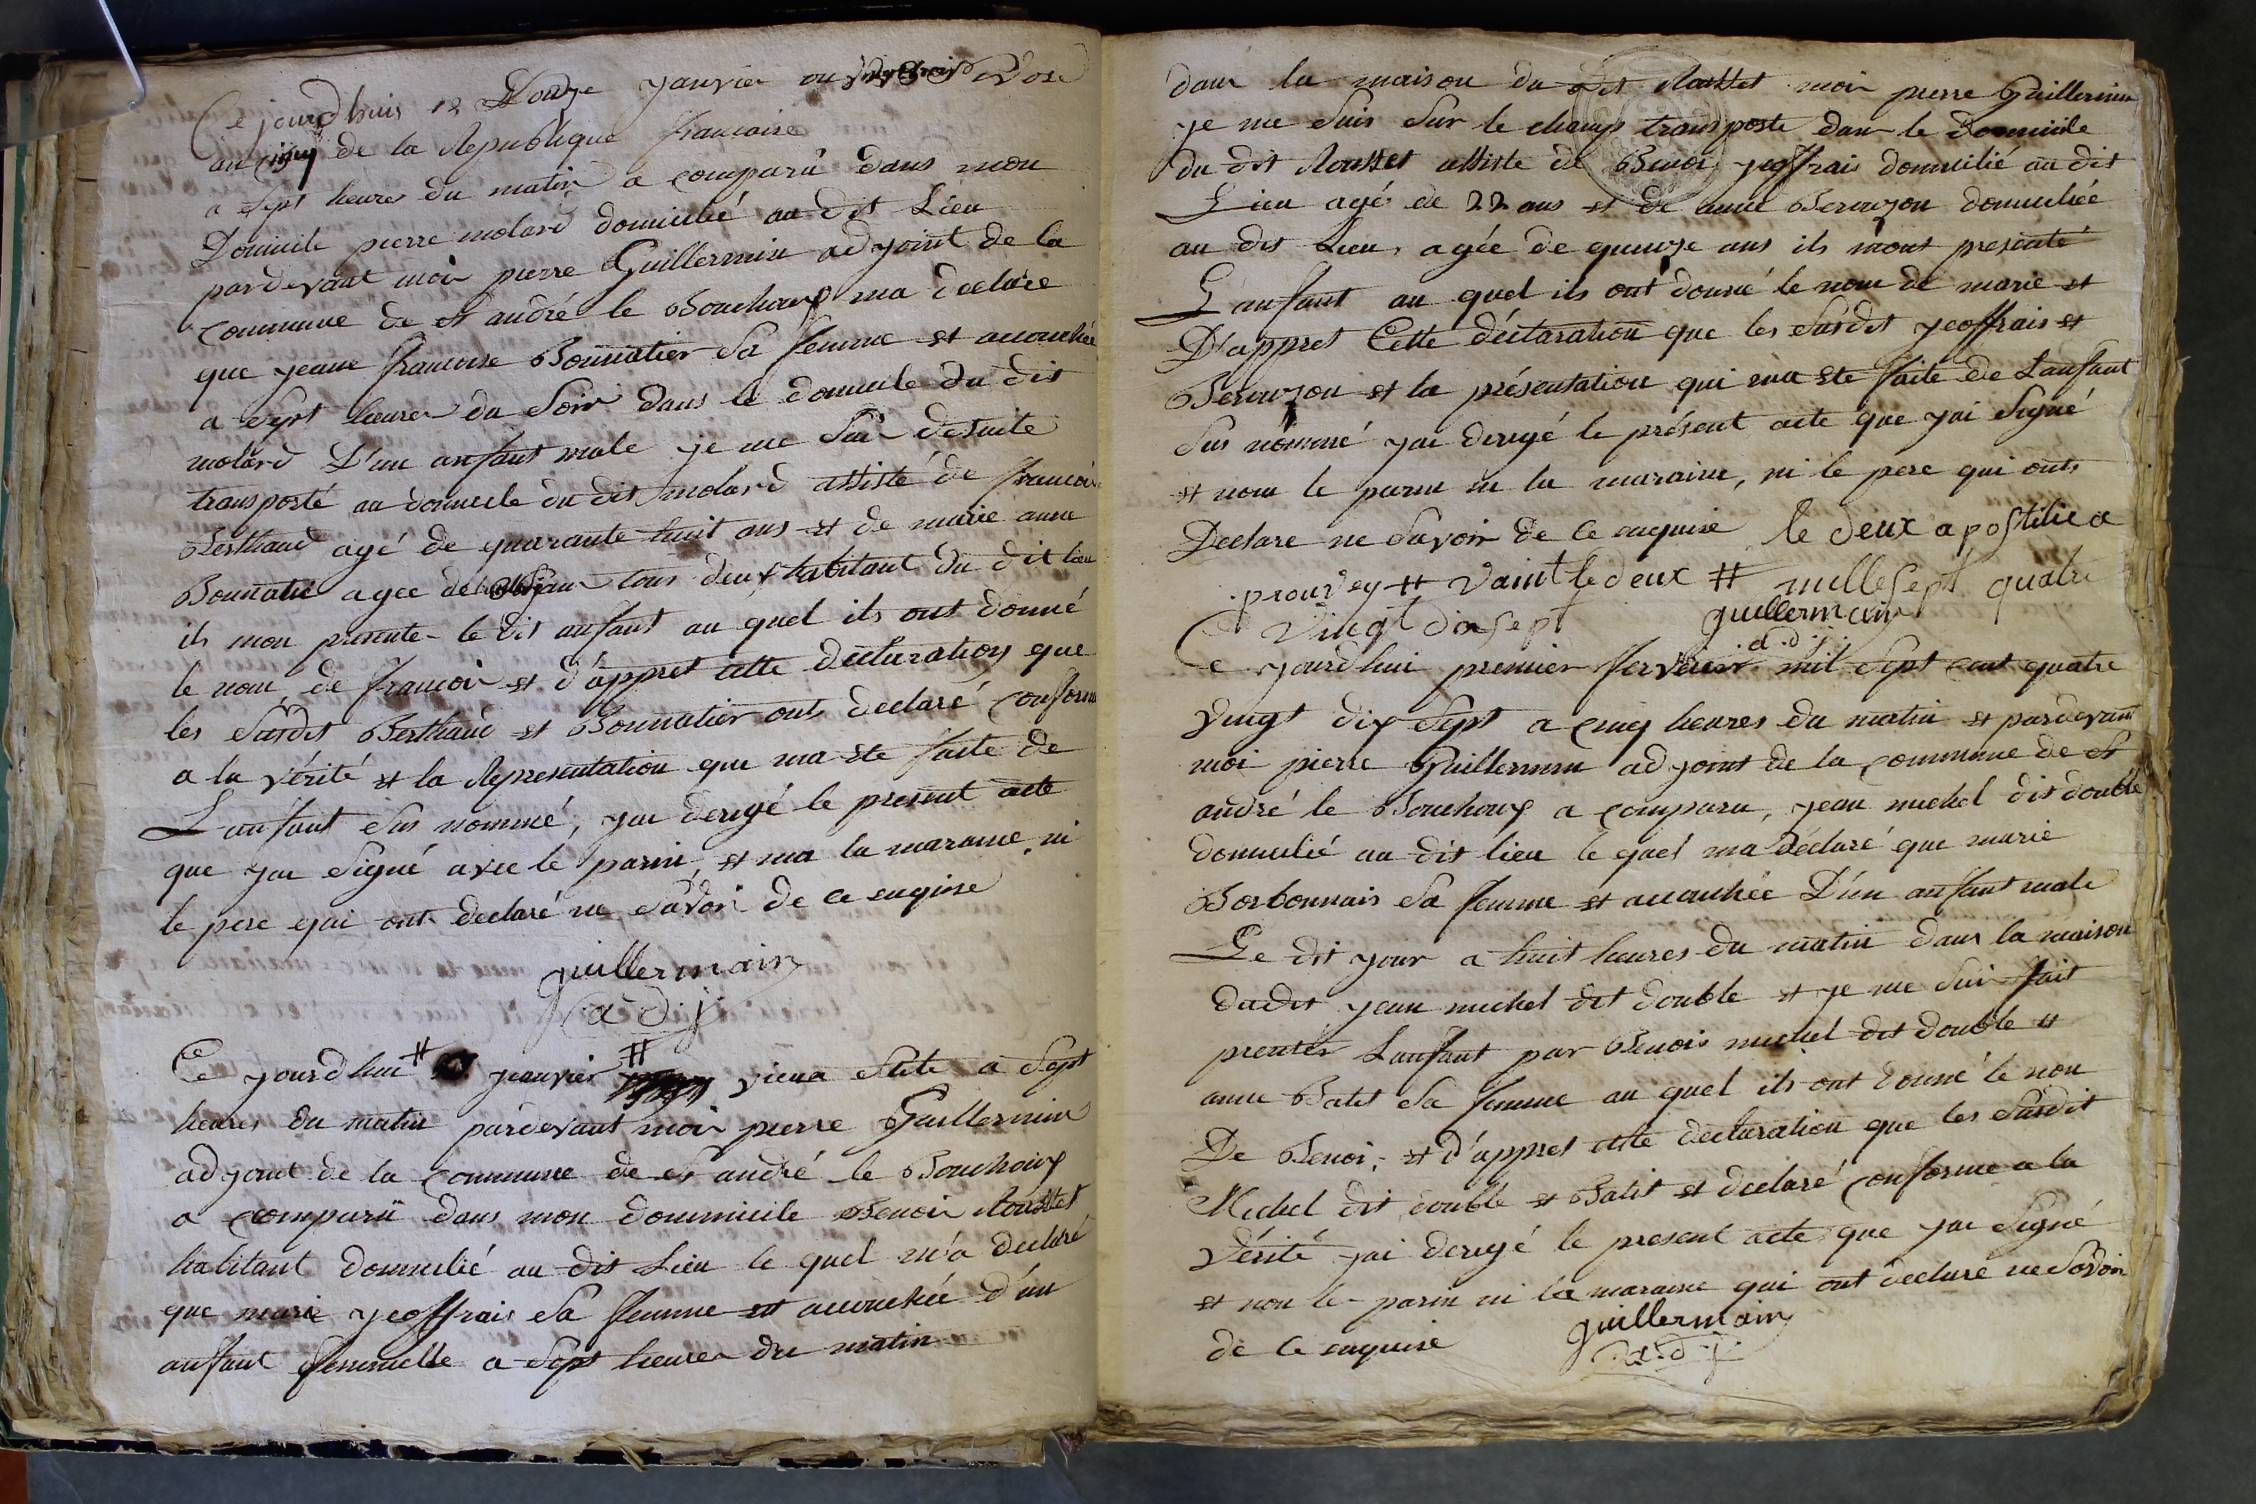 Ce jourdhuis 12 Douze yanvier ou vingt trois Nivose
an cinq de la Republique francaise
a sept heures du matin a comparû dans mon
Domicile pierre molard domicilié au dit Lieu
pardevant moi pierre Guillermin adjoint de la
commune de st andré le Bouchoux ma declare
que yeanne francoise Bonnatier sa femme et accouchée
a sept heures du soir dans le domicile du dit
molard D'un anfant male je me suis desuite
transporté au domicile du dit molard assisté de francois
Berthaud agé de quarante huit ans et de marie anne
Bonnatié agee de ans tous deux habitant du dit lieu
ils mon presente le dit anfant au quel ils ont donné
le nom de francois et d'appret cette declaration que
les susdit Berthaud et Bonnatier onts declaré conforme
a la vérité et la Representation que ma ete faite de
L'anfant sus nommé, jai derigé le present acte
que jai signé avec le parin et ma la maraine ni
le pere qui onts declaré ne savoir de ce enquise
guillermain
adj
Ce yourdhui # yeanvier # viena stile a sept
heures du matin pardevant moi pierre Guillermin
adjoint de la commune de st andré le Bouchoux
a comparû dans mon dommicile Benoi Rousset
habitant domicilié au dit Lieu le quel m'a declaré
que marie yeoffrais sa femme est accouchée d'un
anfant femmelle a sept heures du matin
dans la maison du dit Rousset moi pierre Guillermin
je me suis sur le champ transporté dans le domicile
du dit Rousset assiste de Benoi yeoffrais domicilié au dit
Lieu agé de 22 ans et de anne Berouzou domiciliée
au dit Lieu, agée de quinze ans ils m'ont presenté
L'anfant au quel ils ont donné le nom de marie et
D'appret Cette déclaration que les susdit yeoffrais et
Berouzou et la présentation qui ma ete faite de Lanfant
sus nommé jai derigé le présent acte que jai signé
et nom le parin ni la maraine, ni le pere qui onts
Declare ne savoir de ce enquise le deux apostilie a
prouvey # vaint le deux # mille sept quatre
vingt diasept guillermain
a.d.j.
Ce yourdhui premier fervrier mil sept cent quatre
vingt dix sept a cinq heures du matin et pardevant
moi pierre Guillermin adjoint de la commune de st
andré le Bouchoux a comparu, yean michel dit double
domicilié au dit lieu le quel ma déclaré que marie
Borbonnais sa femme et accouchée D'un anfant male
Le dit your a huit heures du matin dans la maison
dudit yean michel dit double et je me suis fait
prenter Lanfant par Benois michel dit double et
anne Batit sa femme au quel ils ont donné le non
De Benoi, et d'appret cette declaration que les susdit
Michel dit double et Batit et declaré conforme a la
vérité jai derigé le present acte que jai signé
et non le parin ni la maraine qui ont declaré ne savoir
de ce enquise guillermain
a.d.j.